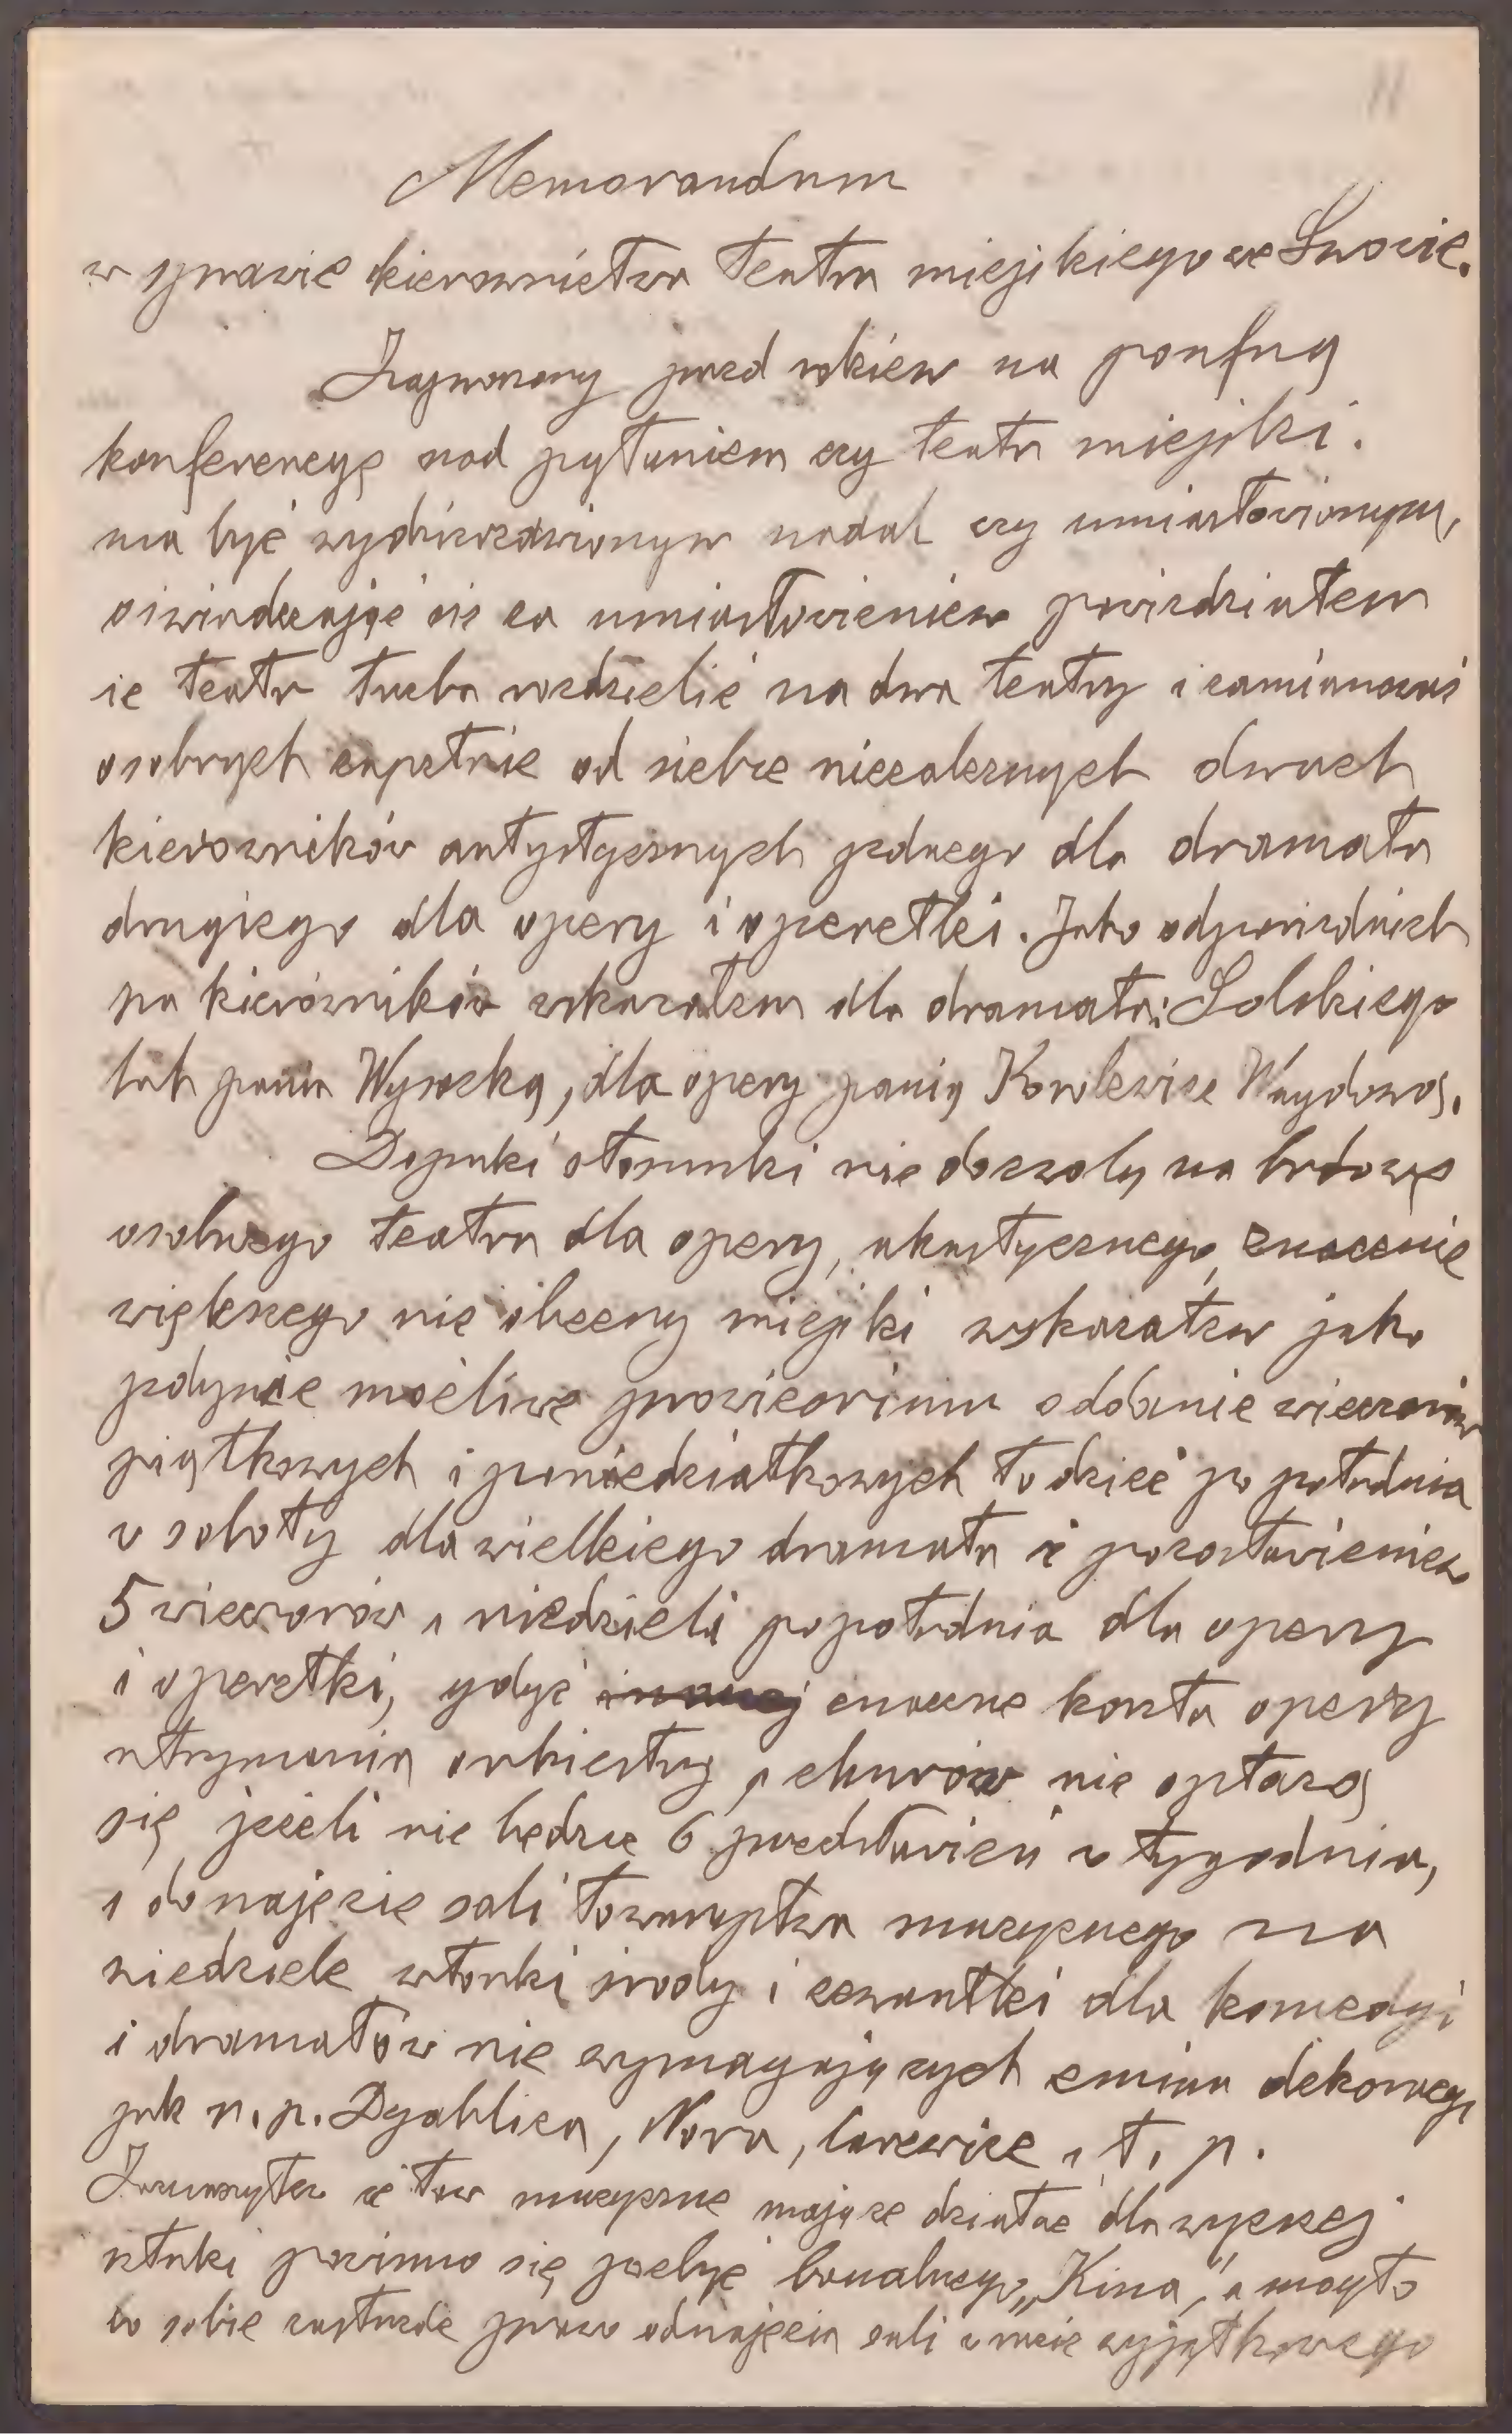 11
Memorandum
w sprawie kierownictwa teatru miejskiego we Lwowie.
Zaproszony przed rokiem na poufną
konferencyę nad pytaniem czy teatr miejski
ma być wydzierżawionym nadal czy umiastowionym,
oświadczając się za umiastowieniem powiedziałem
że teatr trzeba rozdzielić na dwa teatry i zamianować
osobnych zupełnie od siebie niezależnych dwuch
kierowników artystycznych jednego dla dramatu
drugiego dla opery i operetki. Jako odpowiednich
na kierowników wskazałem dla dramatu: Solskiego
lub panią Wysocką, dla opery panią Korolewicz Waydową.
Dopuki stosunki nie dozwolą na budowę
osobnego teatru dla opery, akustycznego, znacznie
większego niż obecny miejski wskazałem jako
jedynie możliwe prowizorium oddanie wieczorów
piątkowych i poniedziałkowych tudzież po południa
w soboty dla wielkiego dramatu z pozostawieniem
5 wieczorów i niedzieli popołudnia dla opery
i operetki, gdyż inaczej znaczne koszta opery
utrzymania orkiestry i chórów nie opłazą
się jeżeli nie będzie 6 przedstawień w tygodniu,
i do najęcie sali towarzystwa muzycznego na
niedziele wtorki środy i czwartki dla komedyi
i dramatów nie wymagających zmian dekoracyi
jak n. p. Dyablica, Nora, Carewicz i t. p.
Zaznaczyłem że tow muzyczne mające działać dla wyższej
sztuki powinno się pozbyć banalnego „Kina", a mogło
by sobie zastrzedz prawo odnajęcia sali w razie wyjątkowego